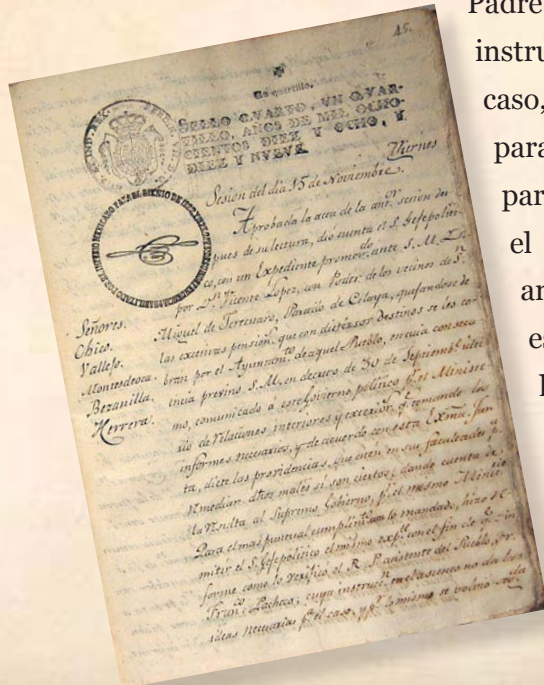 Padre
instru
caso,
para
par
el
an
es
45.
Un quartillo.
SELLO QVARTO, VN QVAR-
TILLO, AÑOS DE MIL OCHO-
CIENTOS DIEZ Y OCHO, Y
DIEZ Y NUEVE.
Viernes
Sesion del dia 15 de Noviembre.
Aprobada la acta de la anor. sesion des
pues de su lectura, dió cuenta el S. Gefe políti
co, con un Expediente promovdo. ante S.M.I.
por Dn. Vicente Lopez, con Poder de los vecinos de Sn.
Miguel de Terrenaro, Partido de Celaya, quejandose de
las excesivas pension.s que con distintos Destinos se les co
bran por el Ayuntamto. de aquel Pueblo, en cuia conseqü
encia previno S.M. en decreto de 30 de Septiembe. últi
mo, comunicado á este Govierno político pr. el Ministe
rio de relaciones interiores y exterior.s qe. tomando los
informes necesarios, y de acuerdo con esta Exma. Jun
ta, dicte las providencias, que estén en sus facultades pa.
remediar dhos. males si son ciertos; dando cuenta de
la resulta al Supremo Gobierno, pr. el mismo Ministe
rio
Para el mas puntual cumplimto. con lo mandado, hizo re
mitir el S. Gefe político el mismo expte. con el fin de qe. in
forme, como lo verificó el R. P. asistente del Pueblo, Fr.
Franco. Pacheco; cuya instrucn. en el asienco no da las
ideas necesarias pa. el caso, y pr. lo mismo se volvió
Señores.
Chico.
Vallejo.
Montesdeoca.
Bezanilla.
Herrera.